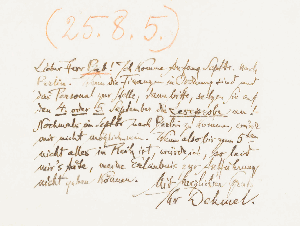 (25.8.5.)
Lieber Herr Ich komme Anfang Septbr. nach
Berlin. Wenn die Finanzen in Ordnung sind und
das Personal zur Stelle, dann bitte, Sie auf
den 4. oder 5. September die Leseprobe an!
Nochmals im Septbr. nach Berlin zu kommen,
mir nicht Wenn also bis zum 5ten
nicht alles in ist, würde ich, so leid
mir's thäte, meine Erlaubnis zur Aufführung
nicht geben können.
Mit herzlichem Gruß
Ihr Dehmel.